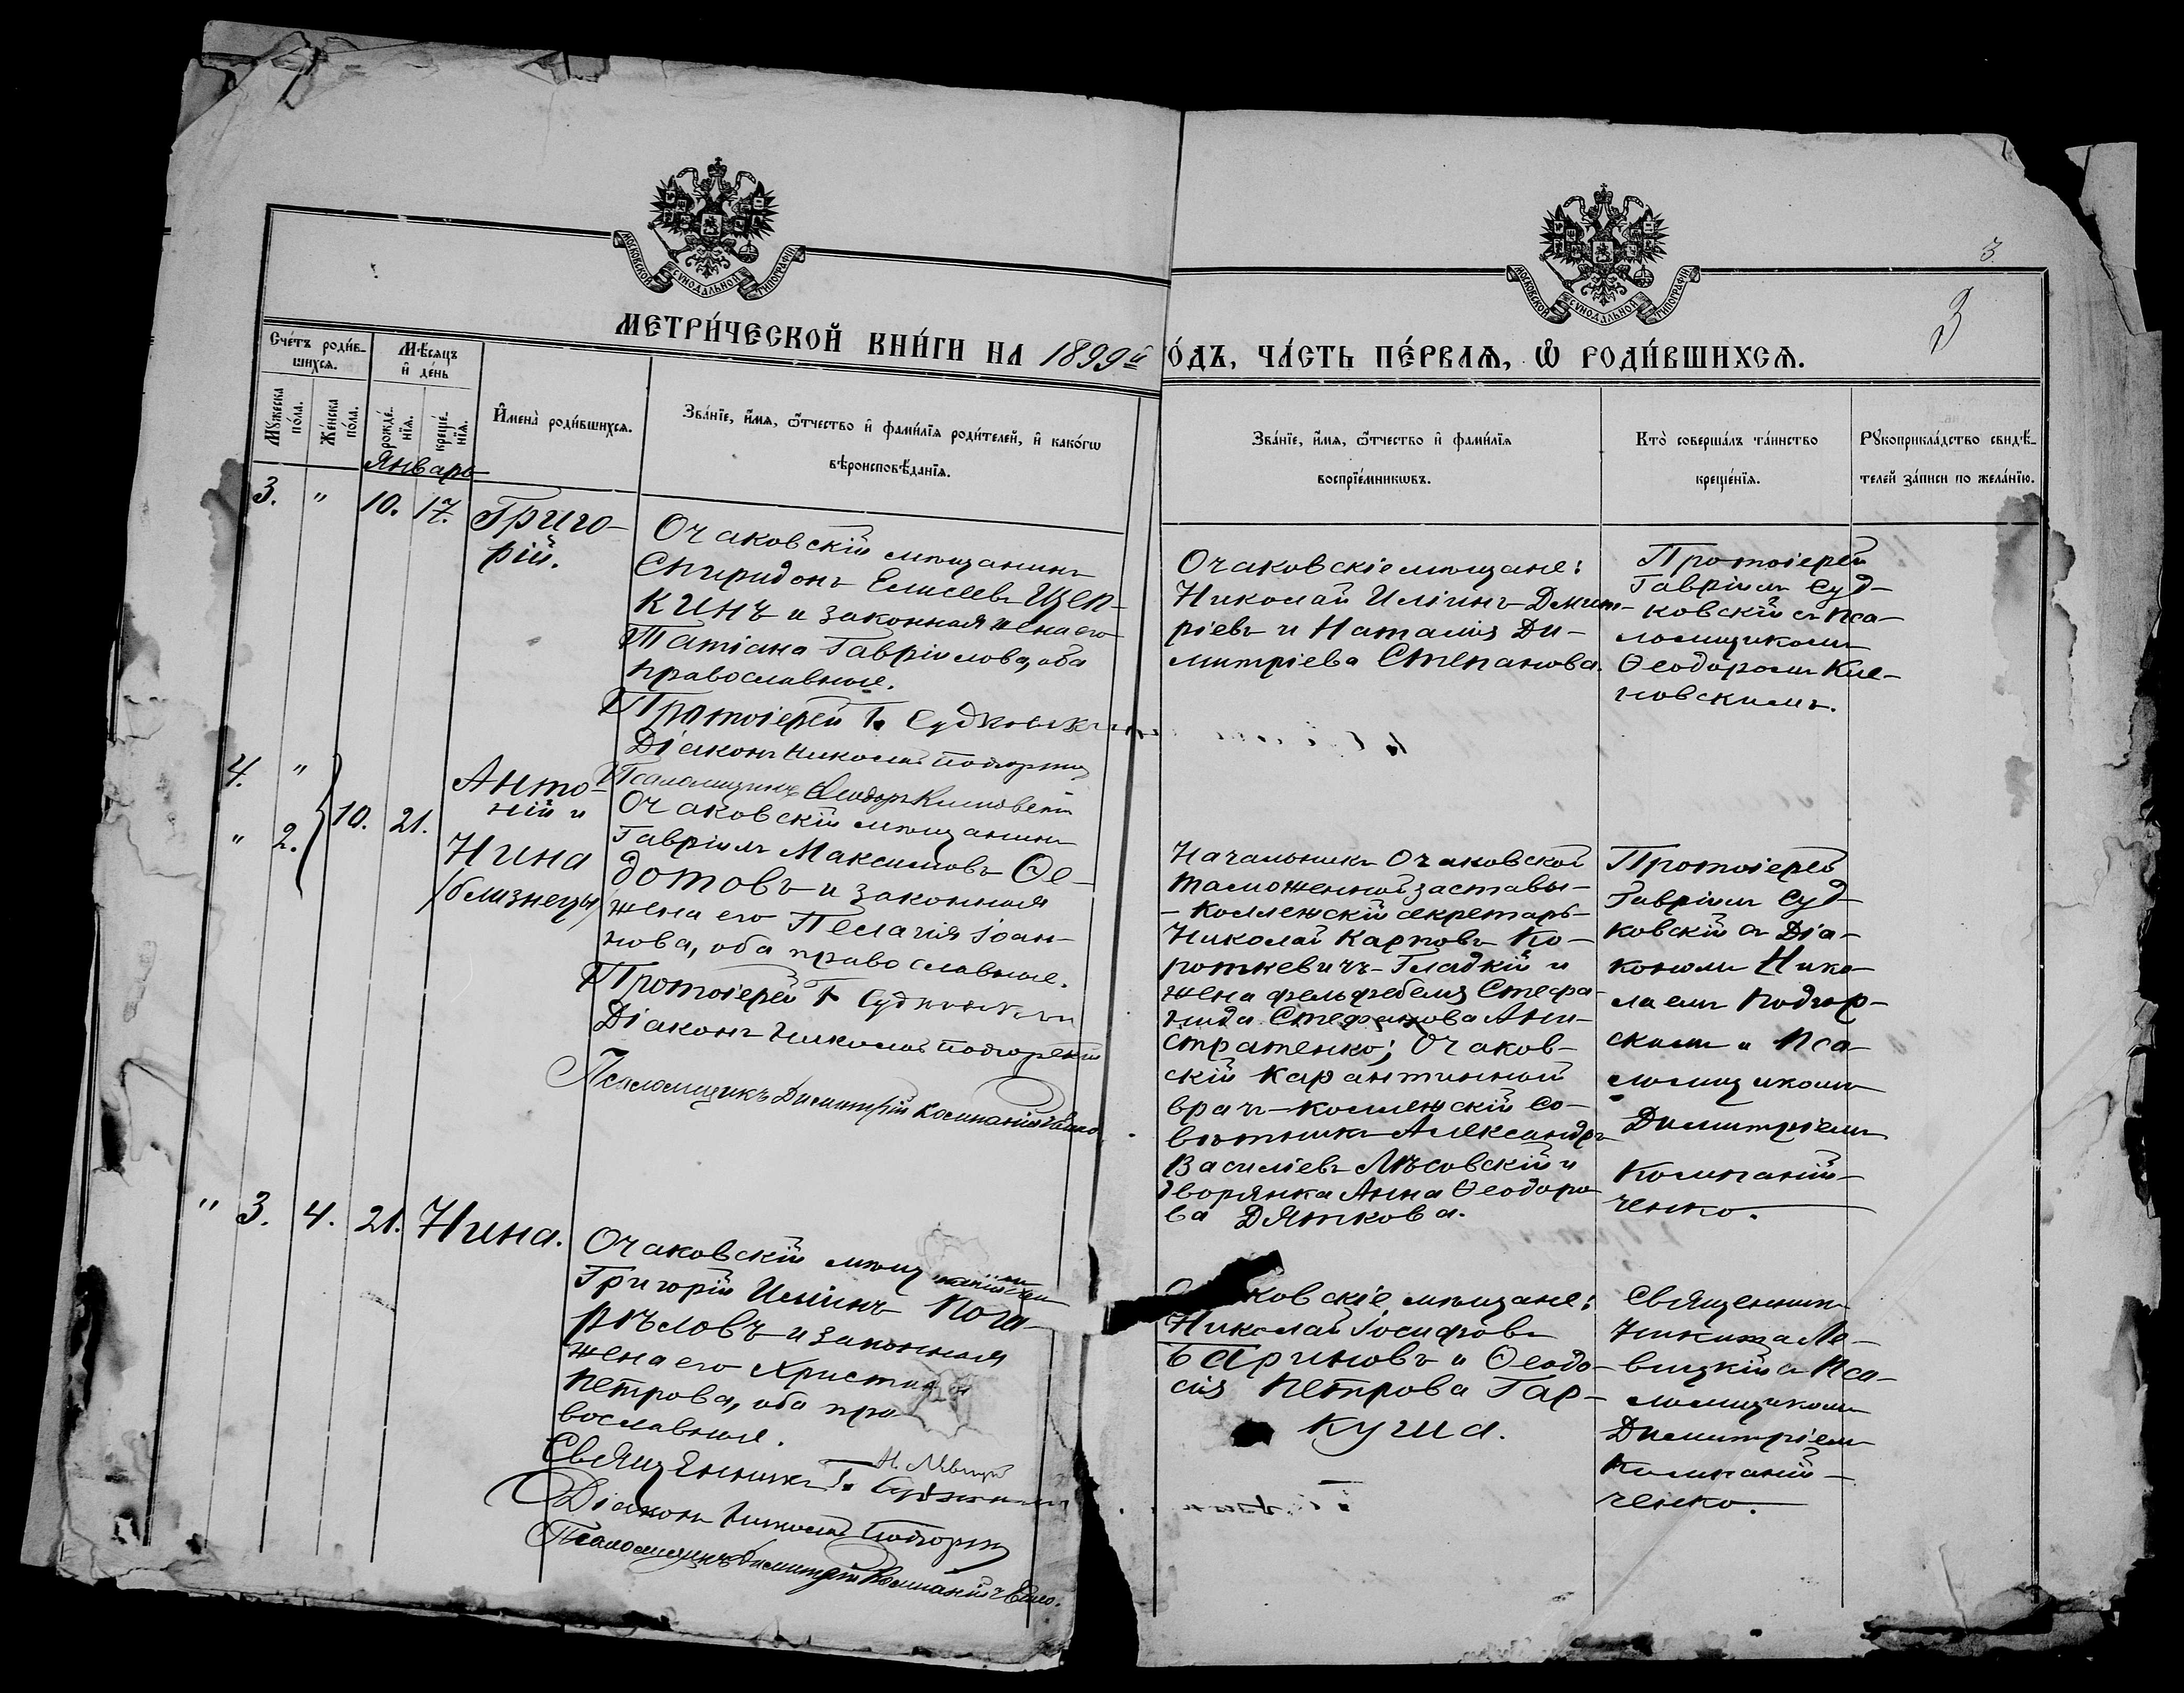 МОСКОВСКОЙ СѴНОДАЛЬНОЙ ТИПОГРАФІИ
МОСКОВСКОЙ СѴНОДАЛЬНОЙ ТИПОГРАФІИ
3.
3
МЕТРИ́ЧЕСКОЙ КНИ́ГИ НА 1899й
О́ДЪ, ЧА́СТЬ ПЕ́РВАѦ, Ѡ҆ РОДИ́ВШИХСѦ.
Сче́тъ роди́в-
шихсѧ.
Мѣ́сѧцъ
и҆ де́нь
Мꙋ́жеска
по́ла.
Же́нска
по́ла.
рожде́-
нїѧ.
креще́-
нїѧ.
И҆мена̀ роди́вшихсѧ.
Зва́нїе, и҆́мѧ, ѻ҆́тчество и҆ фами́лїѧ роди́телей, и҆ како́гѡ
вѣроисповѣ́данїѧ.
Зва́нїе, и҆́мѧ, ѻ҆́тчество и҆ фами́лїѧ
воспрїе́мникѡвъ.
Кто̀ соверша́лъ та́инство
креще́нїѧ.
Рꙋкоприкла́дство свидѣ́-
телей за́писи по жела́нїю.
Январь
3. " 10. 17. Григо-
рій.
Очаковскій мѣщанинъ
Спиридонъ Елисеевъ Щеп-
кинъ и законная жена его
Татіана Гавріилова, оба
православные.
Протоіерей Г. Судковскій
Діаконъ Николай Подгорскій
Псаломщикъ Ѳеодоръ
Очаковскіе мѣщане:
Николай Иліинъ Дмит-
ріевъ и Наталія Ди-
митріева Степанова.
Протоіерей
Гавріилъ Суд-
ковскій съ пса-
ломщикомъ
Ѳеодоромъ Кле-
новскимъ.
4. "
" 2. 10. 21.
Анто-
ній и
Нина
/близнецы/
Очаковскій мѣщанинъ
Гавріилъ Максимовъ Ѳе-
дотовъ и законная
жена его Пелагія Іоан-
нова, оба православные.
Протоіерей Г. Судковскій
Діаконъ Николай Подгорскій
Псаломщикъ Димитрій Компанійченко.
Начальникъ Очаковской
таможенной заставы-
- коллежскій секретарь-
Николай Карповъ Ко-
роткевичъ-Гладкій и
жена фельдфебеля Стефа-
нида Стефанова Али-
стратенко; Очаков-
скій карантинный
врачъ-коллежскій со-
вѣтникъ Александръ
Василіевъ Лѣсовскій и
дворянка Анна Ѳеодоро-
ва Дяткова.
Протоіерей
Гавріилъ Суд-
ковскій съ Діа-
кономъ Нико-
лаемъ Подгор-
скимъ и Пса-
ломщикомъ
Димитріемъ
Компаній-
ченко.
" 3. 4. 21. Нина.
Очаковскій
Григорій Ильинъ Пога-
рѣловъ и законная
жена его Христина
Петрова, оба пра-
вославные.
Священникъ Н. Левицкій
Діаконъ Николай Подгорскій
Псаломщикъ Димитрій Компанійченко.
ковскіе мѣщане:
Николай Іосифовъ
Бариновъ и Ѳеодо-
сія Петрова Гар-
куша.
Священникъ
Никита Ле-
вицкій съ Пса-
ломщикомъ
Димитріемъ
Компаній-
ченко.